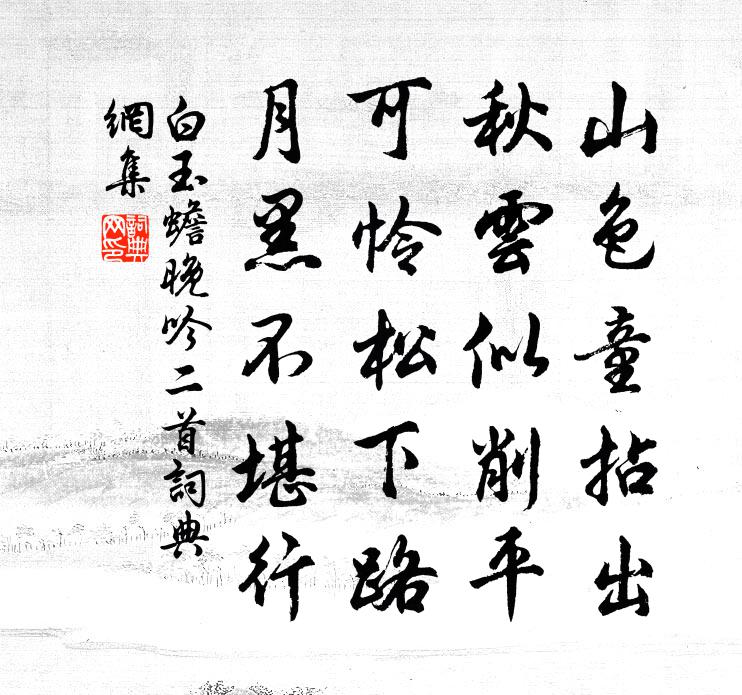 山色重拈出
秋雲似削平
可憐松下路
月黑不堪行
白玉蟾晚吟二首詞典
網集
詞典
网印